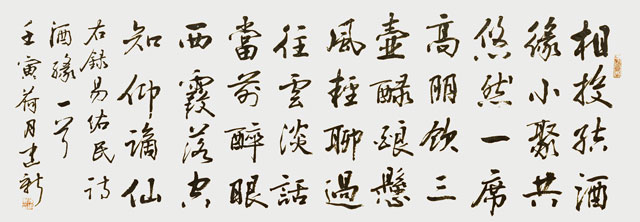 相投結酒
緣小聚共
悠然一席
高朋飲三
壺醁釀懸
風輕聊過
往雲淡話
當前醉眼
西霞落空
知仰謫仙
右錄易佑民詩
酒緣一首
壬寅荷月建新